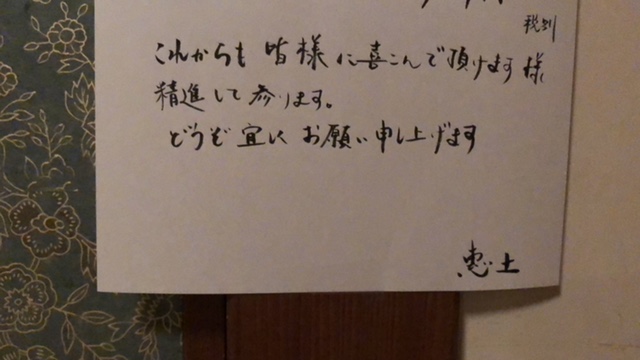 税別
これからも 皆様 に喜こんで頂けます様
精進して参ります。
どうぞ 宜しく お願い申し上げます
恵土